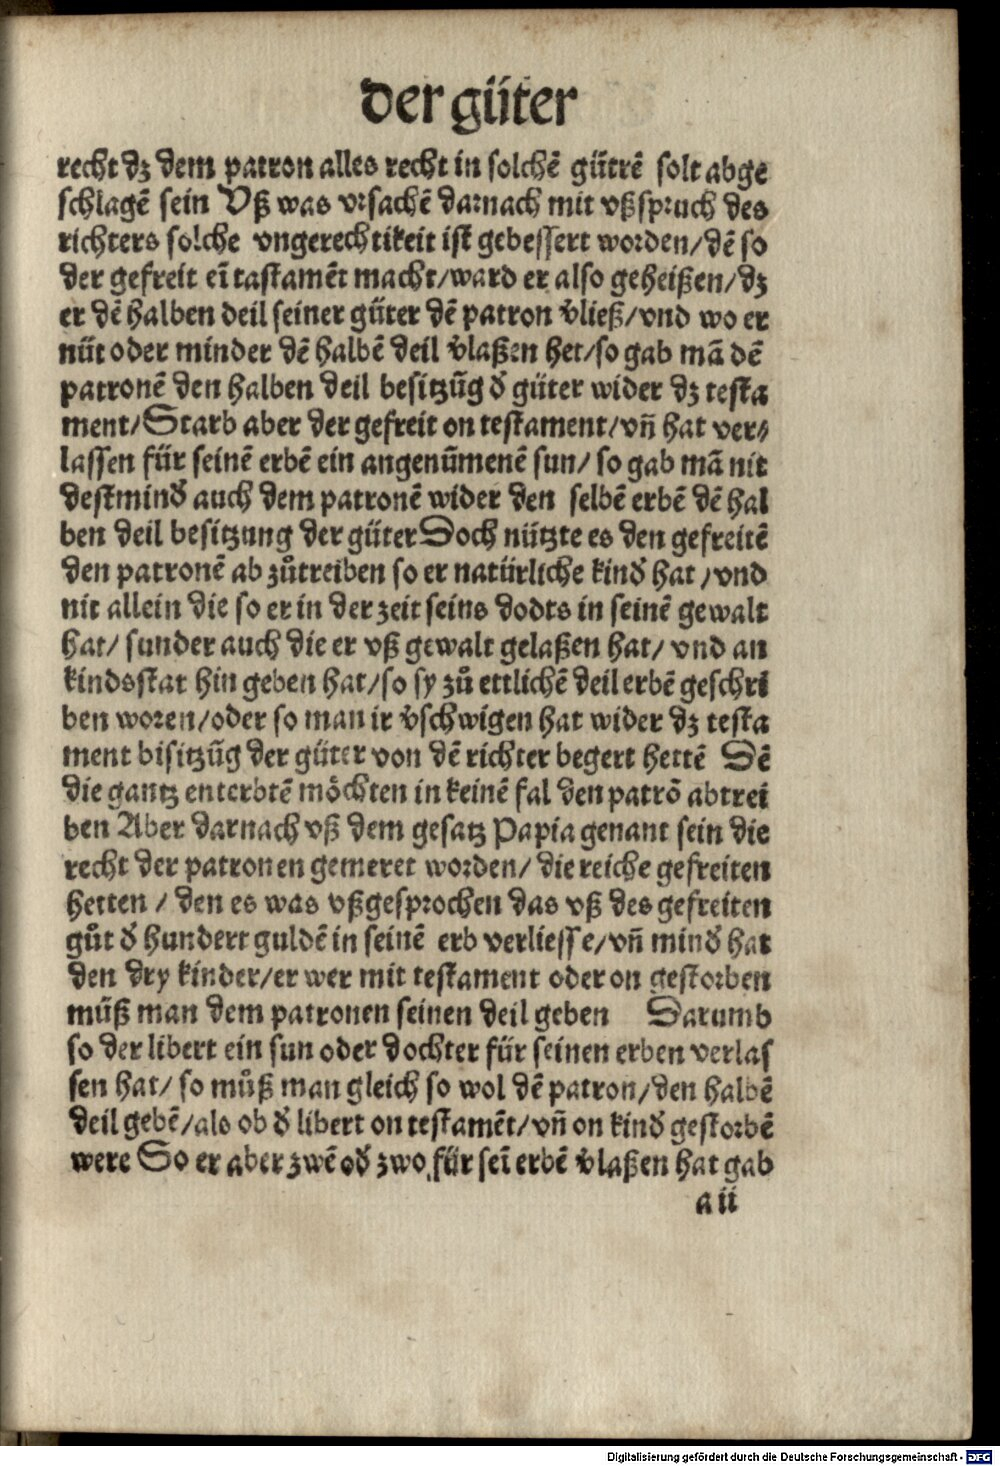 der güter
recht dz dem patron alles recht in solchē gütrē solt abge
schlagē sein Vß was vrsachē darnach mit vßspruch des
richters solche vngerechtikeit ist gebessert worden/dē so
der gefreit eī tastamēt macht/ward er also geheißen/dz
er dē halben deil seiner güter dē patron v̄ließ/vnd wo er
nüt oder minder dē halbē deil v̄laßen het/so gab mā dē
patronē den halben deil besitzūg d̄ güter wider dz testa
ment/Starb aber der gefreit on testament/vn̄ hat ver⸗
lassen für seinē erbē ein angenūmenē sun/ so gab mā nit
destmind̄ auch dem patronē wider den selbē erbē dē hal
ben deil besitzung der güter Doch nützte es den gefreitē
den patronē ab zůtreiben so er natürliche kind̄ hat /vnd
nit allein die so er in der zeit seins dodts in seinē gewalt
hat/ sunder auch die er vß gewalt gelaßen hat/ vnd an
kindsstat hin geben hat/so sy zů ettlichē deil erbē geschri
ben woren/oder so man ir v̄schwigen hat wider dz testa
ment bisitzūg der güter von dē richter begert hettē Dē
die gantz enterbtē möchten in keinē fal den patrō abtrei
ben Aber darnach vß dem gesatz Papia genant sein die
recht der patronen gemeret worden/ die reiche gefreiten
hetten / den es was vßgesprochen das vß des gefreiten
gůt d̄ hundert guldē in seinē erb verliesse/vn̄ mind̄ hat
den dry kinder/er wer mit testament oder on gestorben
můß man dem patronen seinen deil geben Darumb
so der libert ein sun oder dochter für seinen erben verlas
sen hat/ so můß man gleich so wol dē patron/den halbē
deil gebē/als ob d̄ libert on testamēt/vn̄ on kind̄ gestorbē
were So er aber zwē od̄ zwo für seī erbē v̄laßen hat gab
a ii
Digitalisierung gefördert durch die Deutsche Forschungsgemeinschaft - DFG